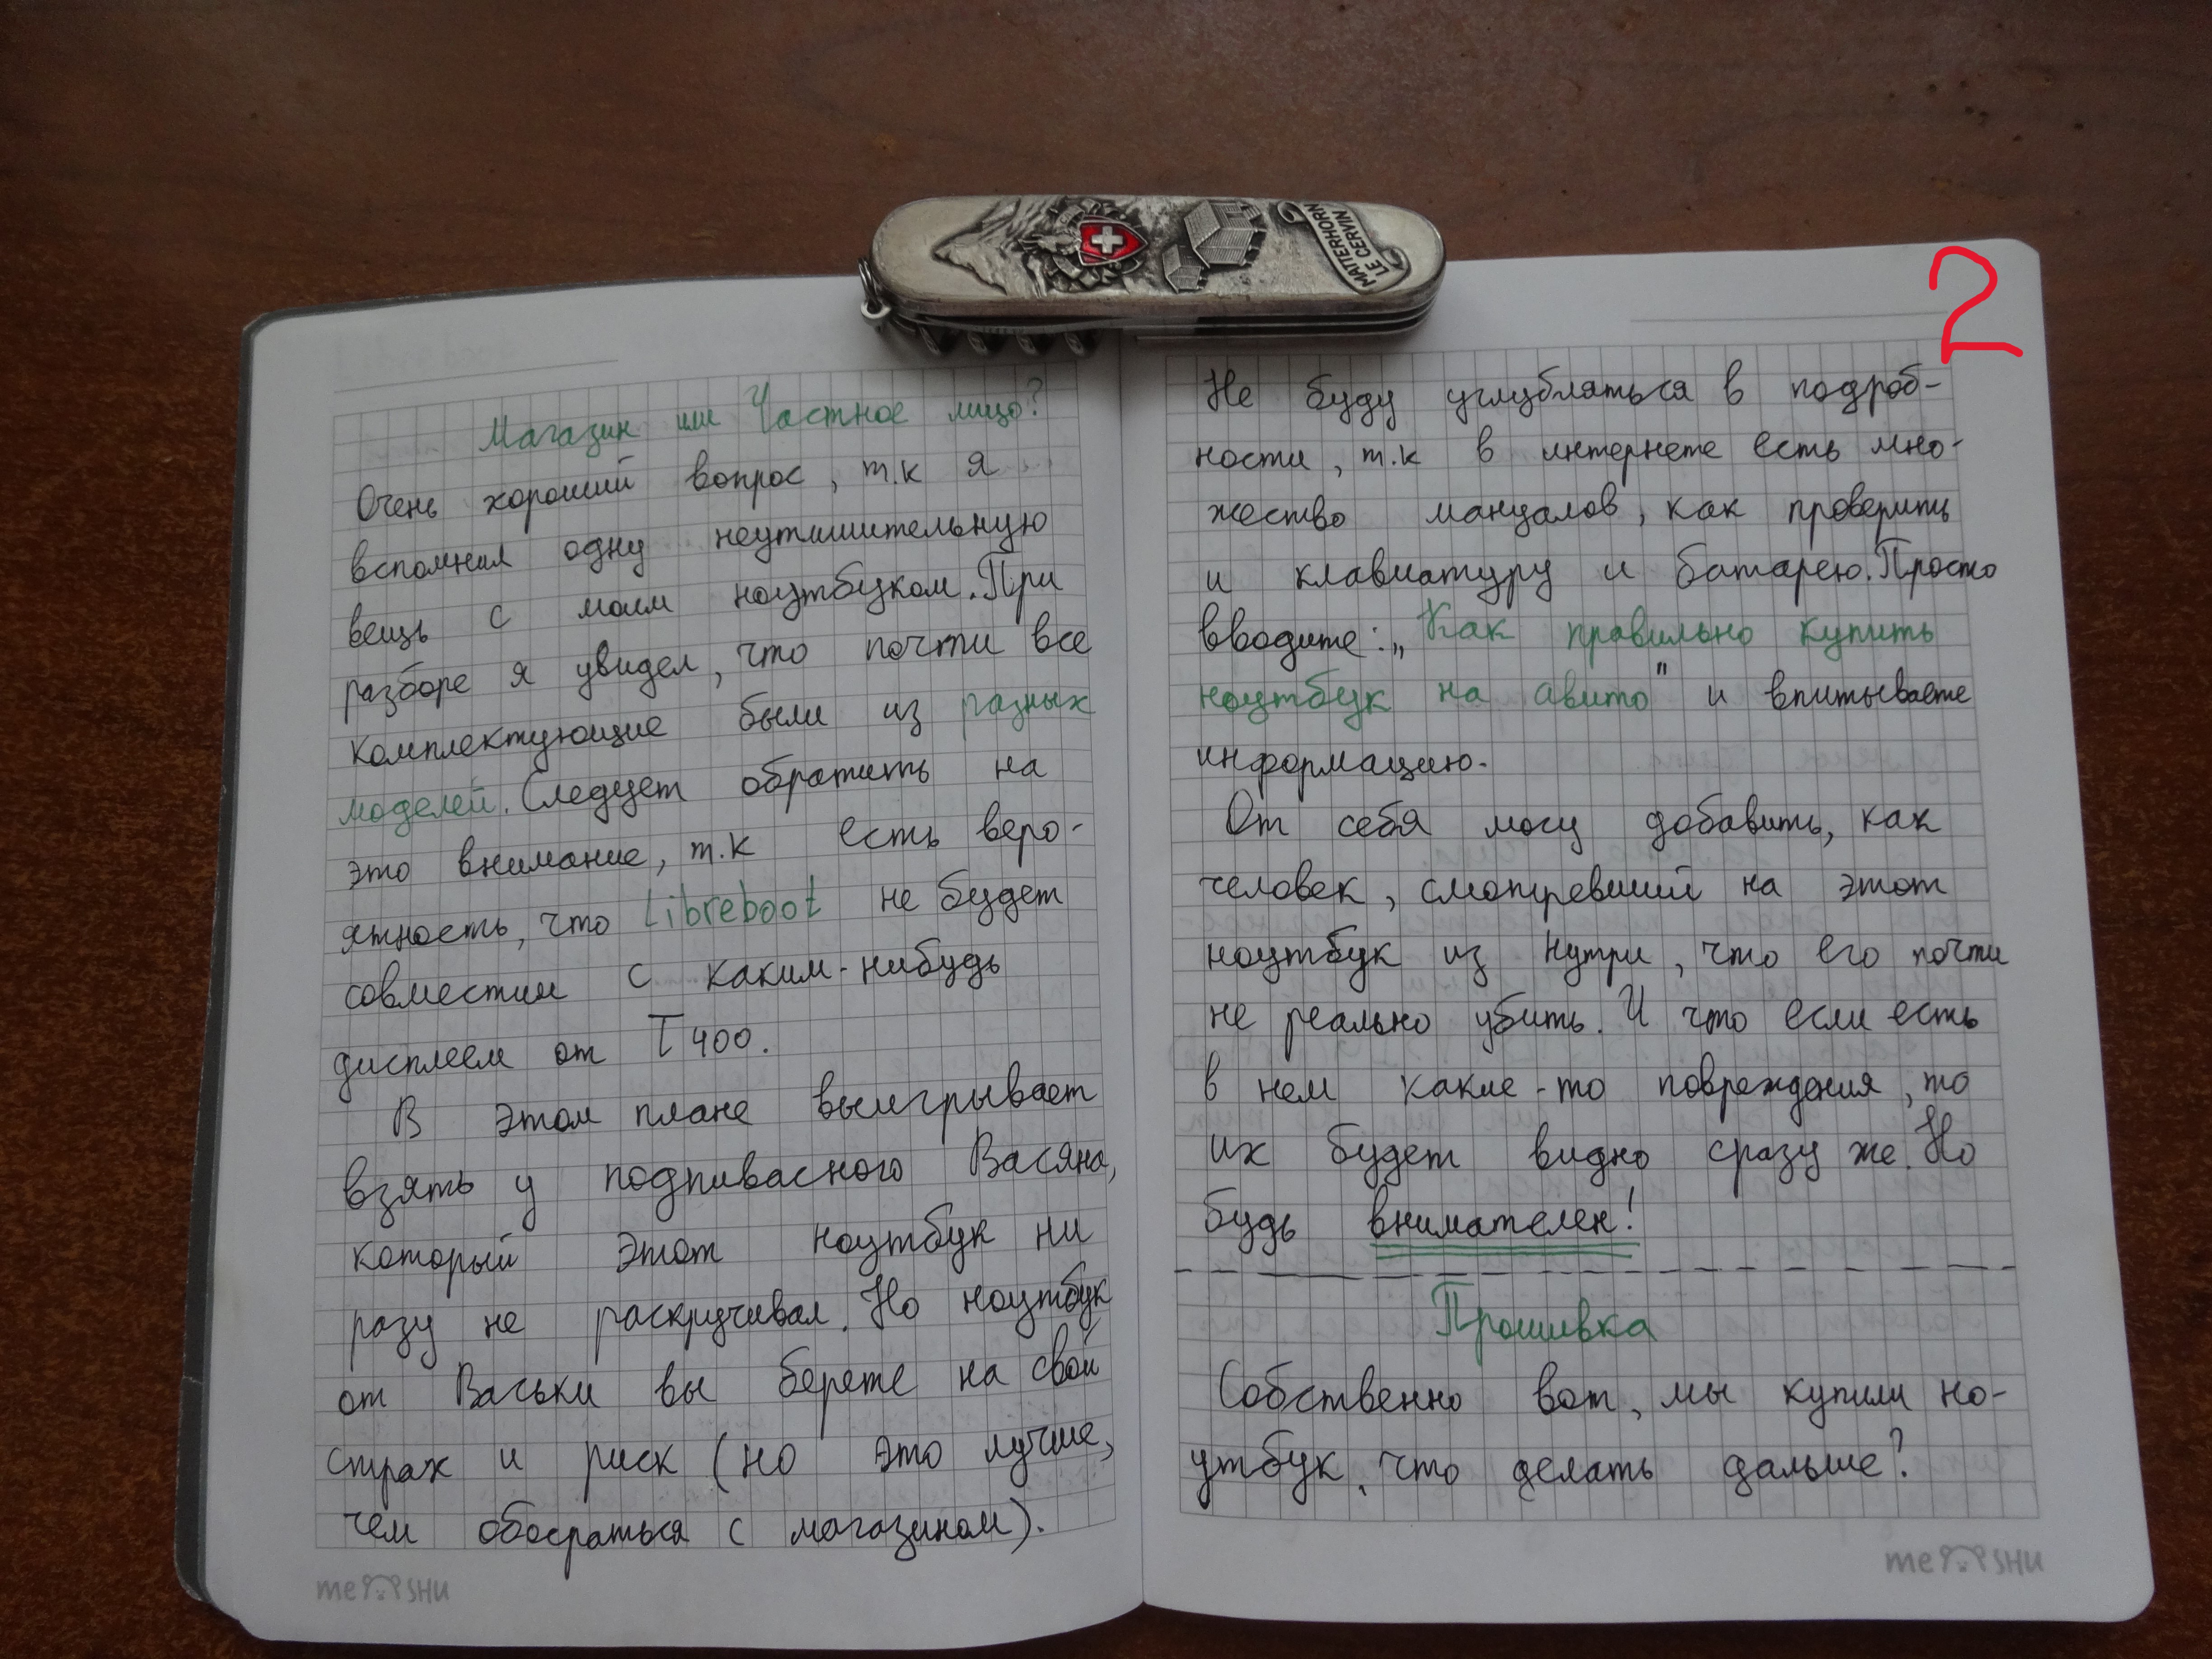 MATTERHORN
LE CERVIN
2
Магазин или Частное лицо?
Очень хороший вопрос, т.к я
вспомнил одну неутишительную
вещь с моим ноутбуком. При
разборе я увидел, что почти все
комплектующие были из разных
моделей. Следует обратить на
это внимание, т.к есть веро-
ятность, что Libreboot не будет
совместим с каким-нибудь
дисплеем от T400.
В этом плане выигрывает
взять у подпивасного Васяна,
который этот ноутбук ни
разу не раскручивал. Но ноутбук
от Васьки вы берете на свой
страх и риск (но это лучше,
чем обосраться с магазином).
me SHU
Не буду углубляться в подроб-
ности, т.к в интернете есть мно-
жество мануалов, как проверить
и клавиатуру и батарею. Просто
вводите: „Как правильно купить
ноутбук на авито" и впитываете
информацию.
От себя могу добавить, как
человек, смотревший на этот
ноутбук из нутри, что его почти
не реально убить. И что если есть
в нем какие-то повреждения, то
их будет видно сразу же. Но
будь внимателен!
Прошивка
Собственно вот, мы купили но-
утбук, что делать дальше?
me SHU